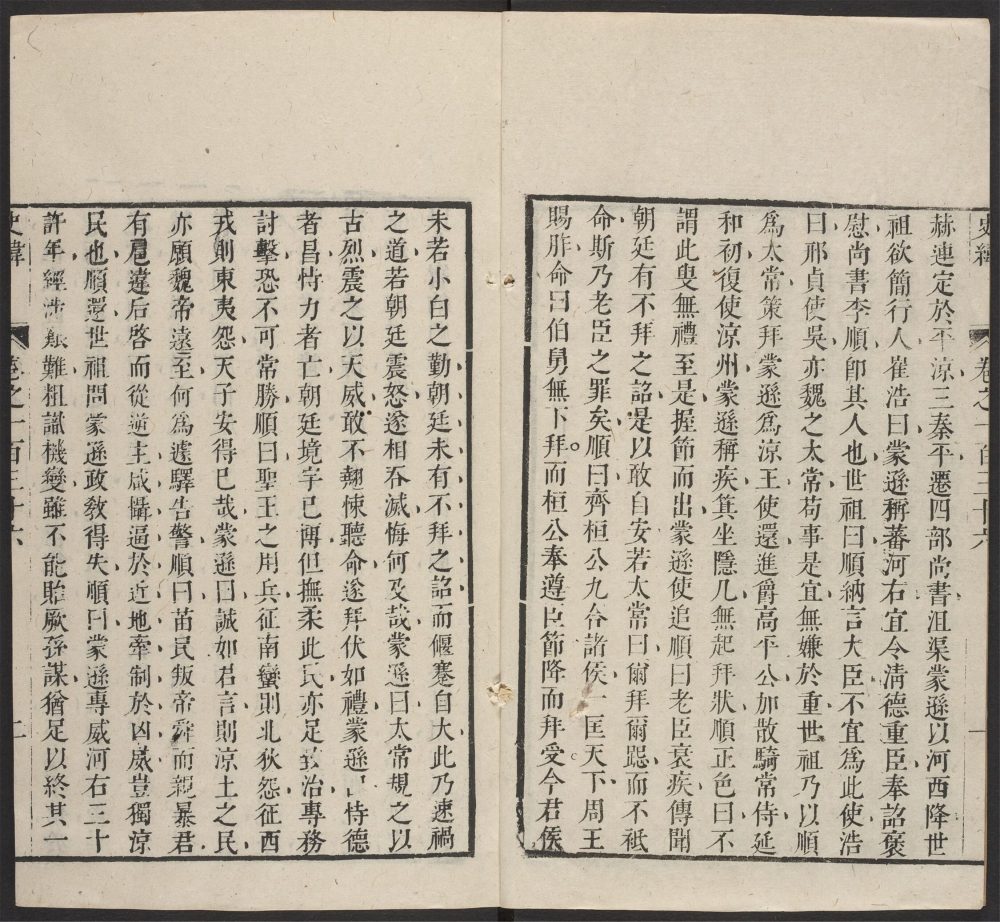 史緯 卷之一百三十六 一
赫連定於平涼三秦平遷四部尚書沮渠蒙遜以河西降世
祖欲簡行人崔浩曰蒙遜稱蕃河右宜令清德重臣奉詔褒
慰尚書李順卽其人也世祖曰順納言大臣不宜爲此使浩
曰邢貞使吳亦魏之太常苟事是宜無嫌於重世祖乃以順
爲太常策拜蒙遜爲涼王使還進爵高平公加散騎常侍延
和初復使涼州蒙遜稱疾箕坐隱几無起拜狀順正色曰不
謂此叟無禮至是握節而出蒙遜使追順曰老臣衰疾傳聞
朝廷有不拜之詔是以敢自安若太常曰爾拜爾跽而不祗
命斯乃老臣之罪矣順曰齊桓公九合諸侯一匡天下周王
賜胙命曰伯舅無下拜而桓公奉遵臣節降而拜受今君侯
未若小白之勤朝廷未有不拜之詔而偃蹇自大此乃速禍
之道若朝廷震怒遂相吞滅悔何及哉蒙遜曰太常規之以
古烈震之以天威敢不翹悚聽命遂拜伏如禮蒙遜曰恃德
者昌恃力者亡朝廷境宇已博但撫柔此民亦足致治專務
討擊恐不可常勝順曰聖王之用兵征南蠻則北狄怨征西
戎則東夷怨天子安得已哉蒙遜曰誠如君言則涼土之民
亦願魏帝遠至何爲遽驛告警順曰苗民叛帝舜而親暴君
有扈違后啓而從逆主咸懾逼於近地牽制於凶威豈獨涼
民也順還世祖問蒙遜政教得失順曰蒙遜專威河右三十
許年經涉艱難粗識機變雖不能貽厥孫謀猶足以終其一
史緯 卷之一百三十六 二